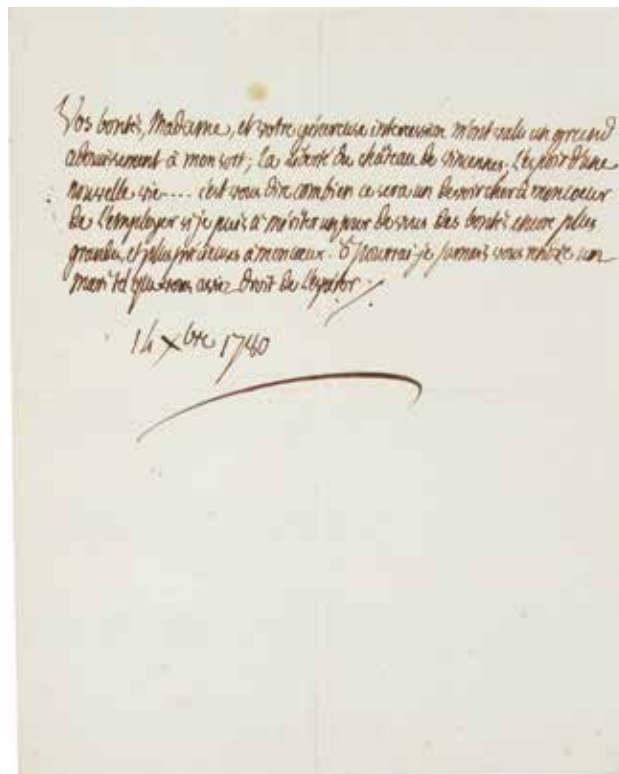 Vos bontés, Madame, et votre généreuse intercession m'ont valu un grand
adoucissement à mon sort; la liberté du château de vincennes. L'espoir d'une
nouvelle vie.... c'est vous dire combien ce sera un devoir cher à mon coeur
de l'employer si je puis à mériter un jour de vous des bontés encore plus
grandes, et plus précieuses à mon coeur. o pourrai-je jamais vous rendre un
mari tel que vous aviez droit de l'espérer.
14 Xbre 1780